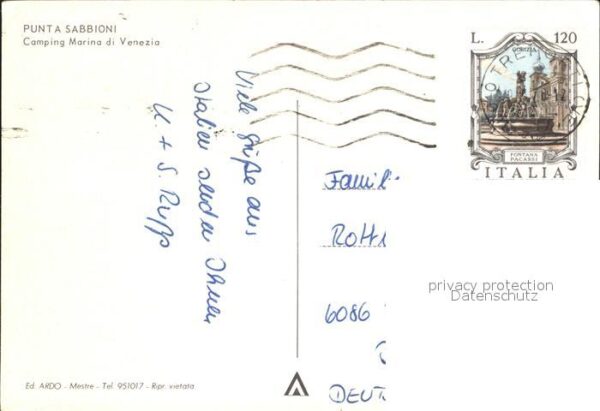 PUNTA SABBIONI
Camping Marina di Venezia
Viele Grüße aus
Italien senden Ihnen
U + S. Rupp
L. 120
GORIZIA
FONTANA
PACASSI
ITALIA
Famil
Roth
6086
DEUT
privacy protection
Datenschutz
Ed. ARDO - Mestre - Tel. 951017 - Ripr. vietata